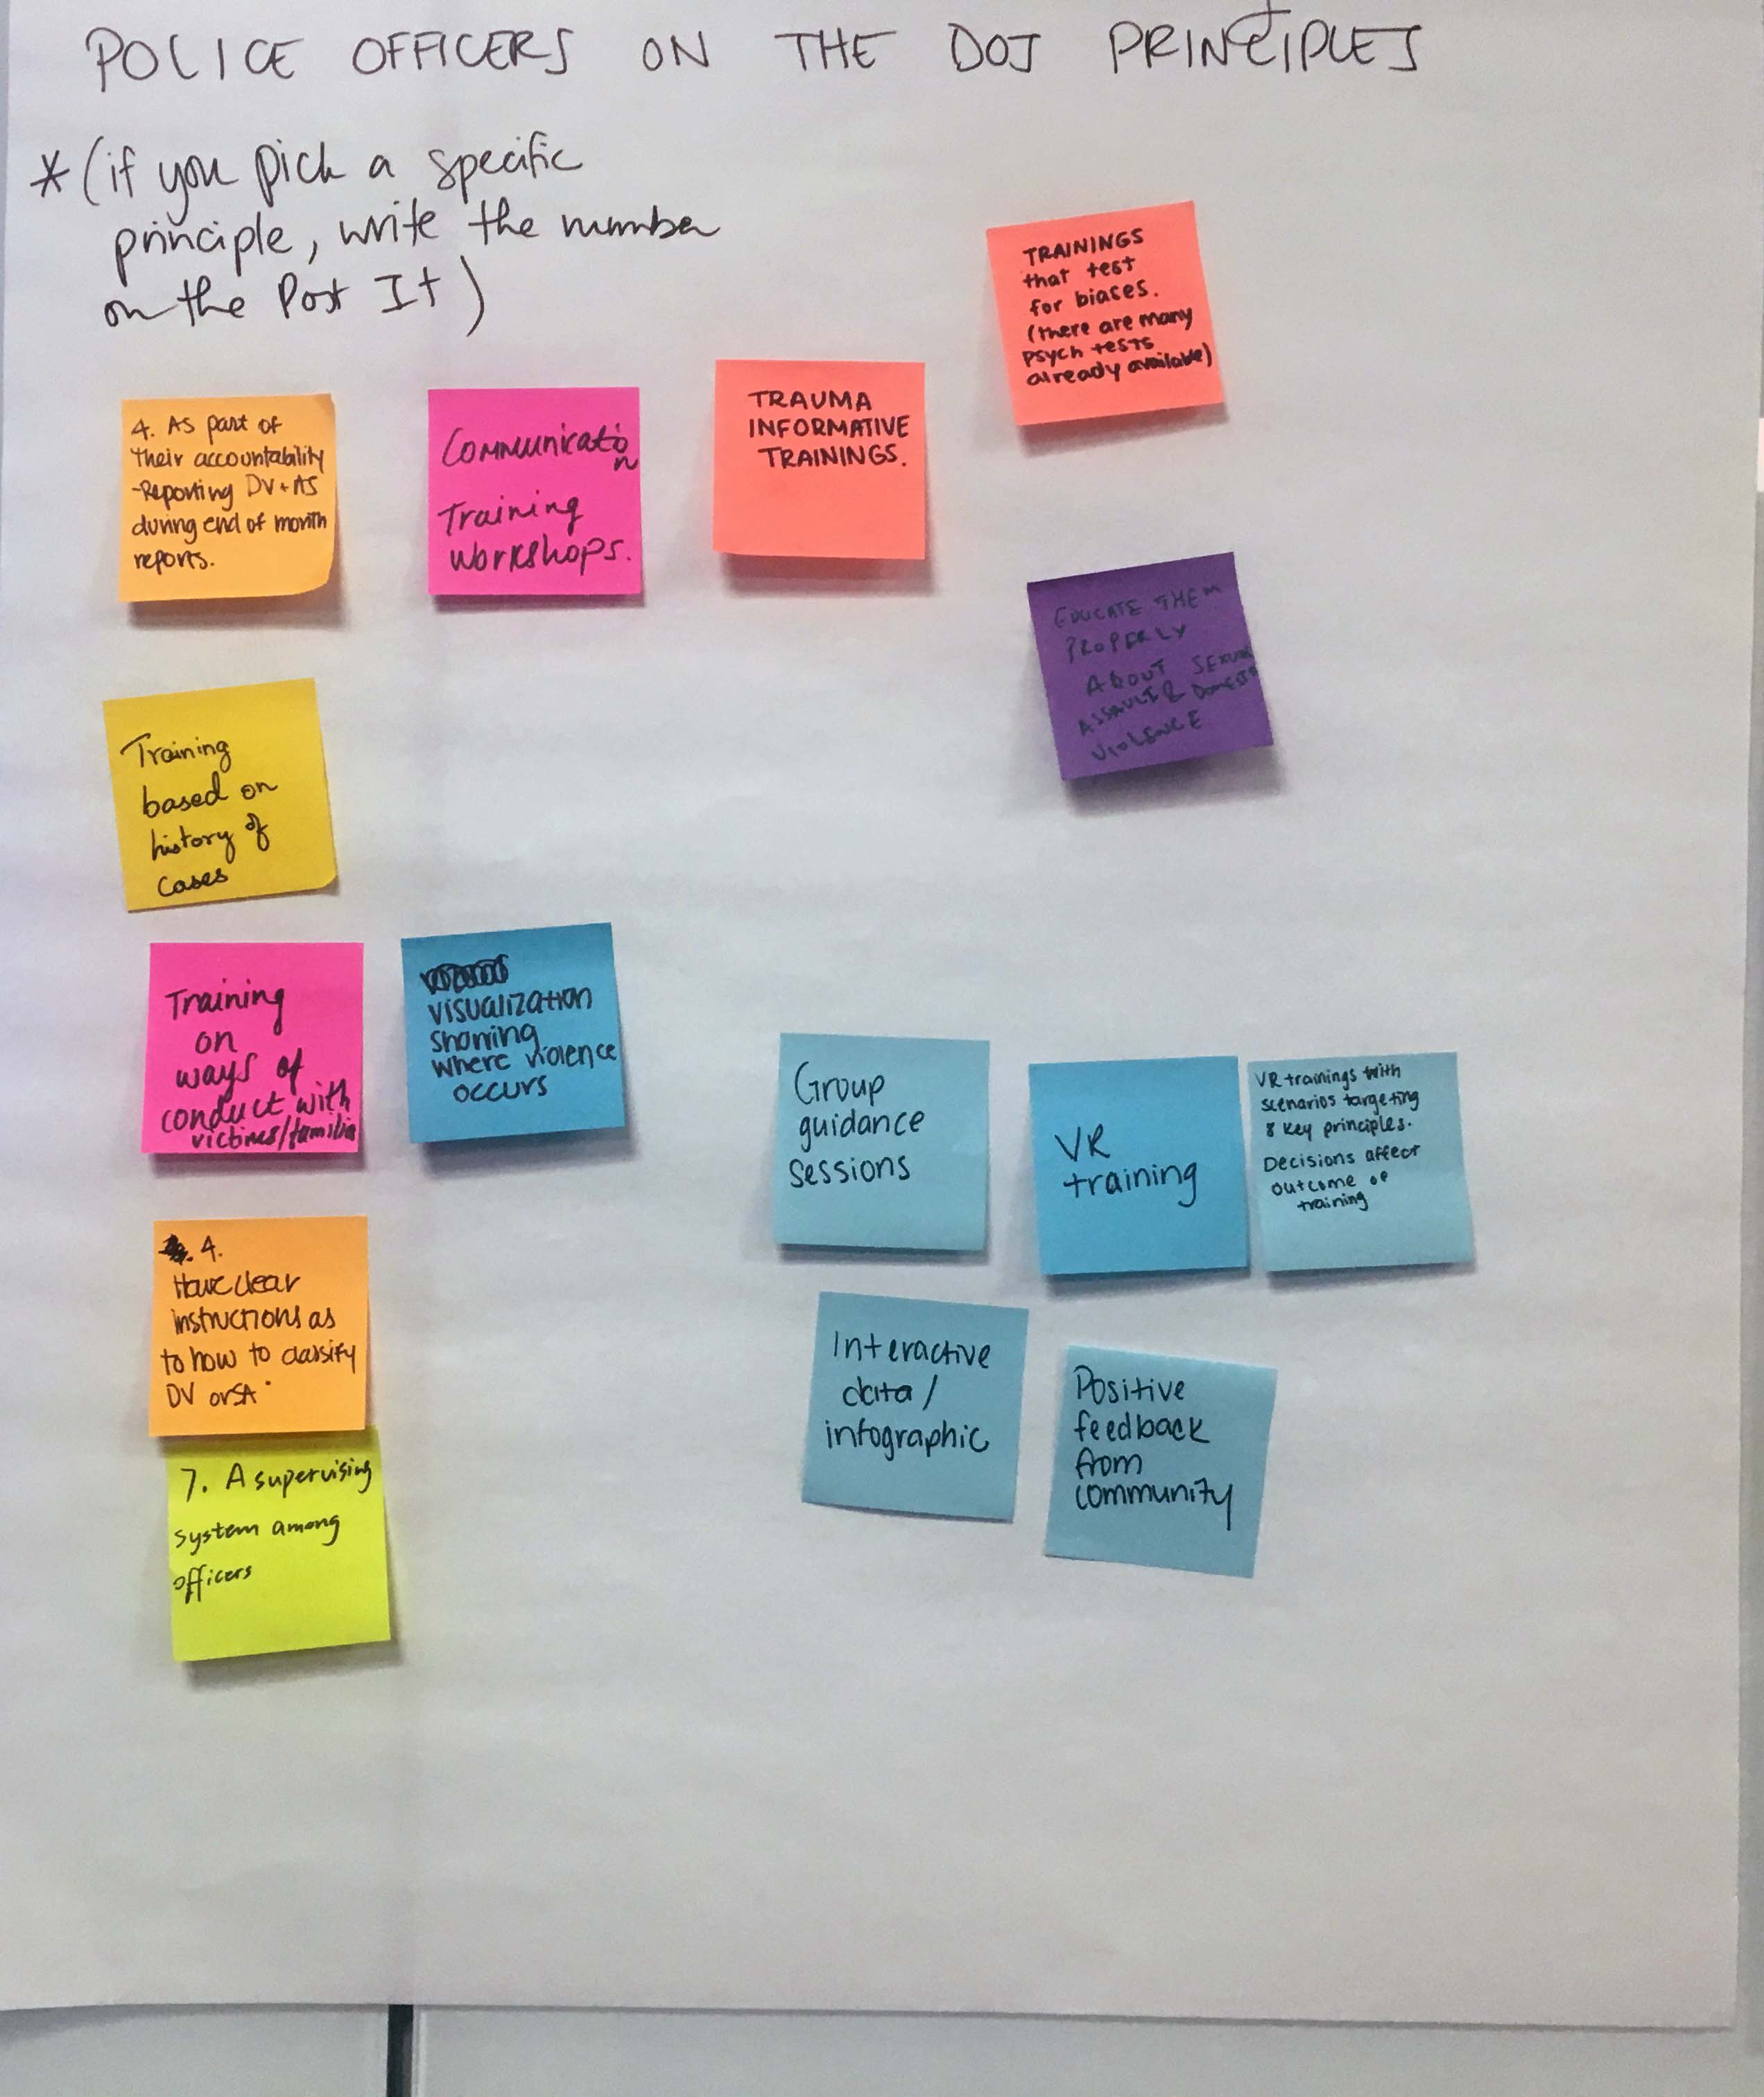 POLICE OFFICERS ON THE DOJ PRINCIPLES
*(if you pick a specific
principle, write the number
on the Post It)
TRAININGS
that test
for biases.
(there are many
psych tests
already available)
4. As part of
their accountability
-Reporting DV+AS
during end of month
reports.
Communication
Training
workshops.
TRAUMA
INFORMATIVE
TRAININGS.
EDUCATE THEM
PROPERLY
ABOUT SEXUAL
ASSAULT & DOMESTIC
VIOLENCE
Training
based on
history of
cases
Training
on
ways of
conduct with
victims/familia
visualization
showing
where violence
occurs
Group
guidance
sessions
VR
training
VR trainings with
scenarios targeting
8 key principles.
Decisions affect
outcome of
training
4.
Have clear
instructions as
to how to classify
DV or SA
Interactive
data/
infographic
Positive
feedback
from
community
7. A supervising
system among
officers